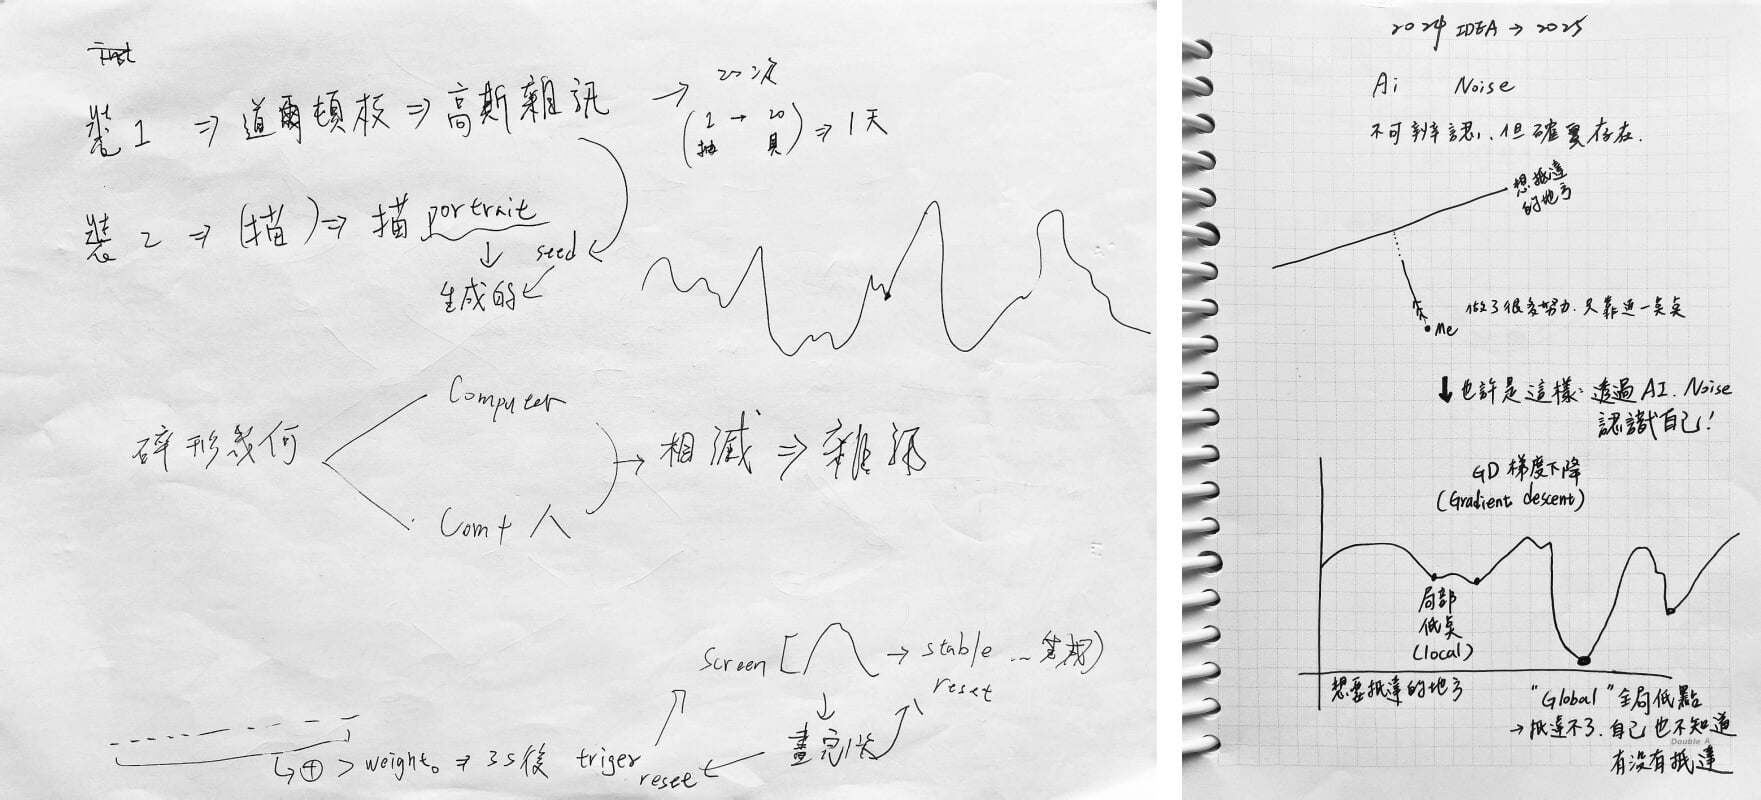 裝1 ⇒ 道爾頓板 ⇒ 高斯雜訊 → 20次
(1 → 20) ⇒ 1天
抽 頁
裝2 ⇒ (描) ⇒ 描 portrait
seed
生成的
Computer
碎形幾何
相減 ⇒ 雜訊
Com + 人
screen [ → stable ... 算成)
reset
畫完1張
→ ⊕ > weight。 ⇒ 3s後 triger
reset
2024 IDEA → 2025
Ai Noise
不可辨認、但確實存在.
想抵達
的地方
做了很多努力.只靠近一點点
Me
也許是這樣:透過AI.Noise
認識自己!
GD 梯度下降
(Gradient descent)
局部
低点
(local)
想要抵達的地方
"Global" 全局低點
→ 抵達不了.自己也不知道
Double A
有沒有抵達